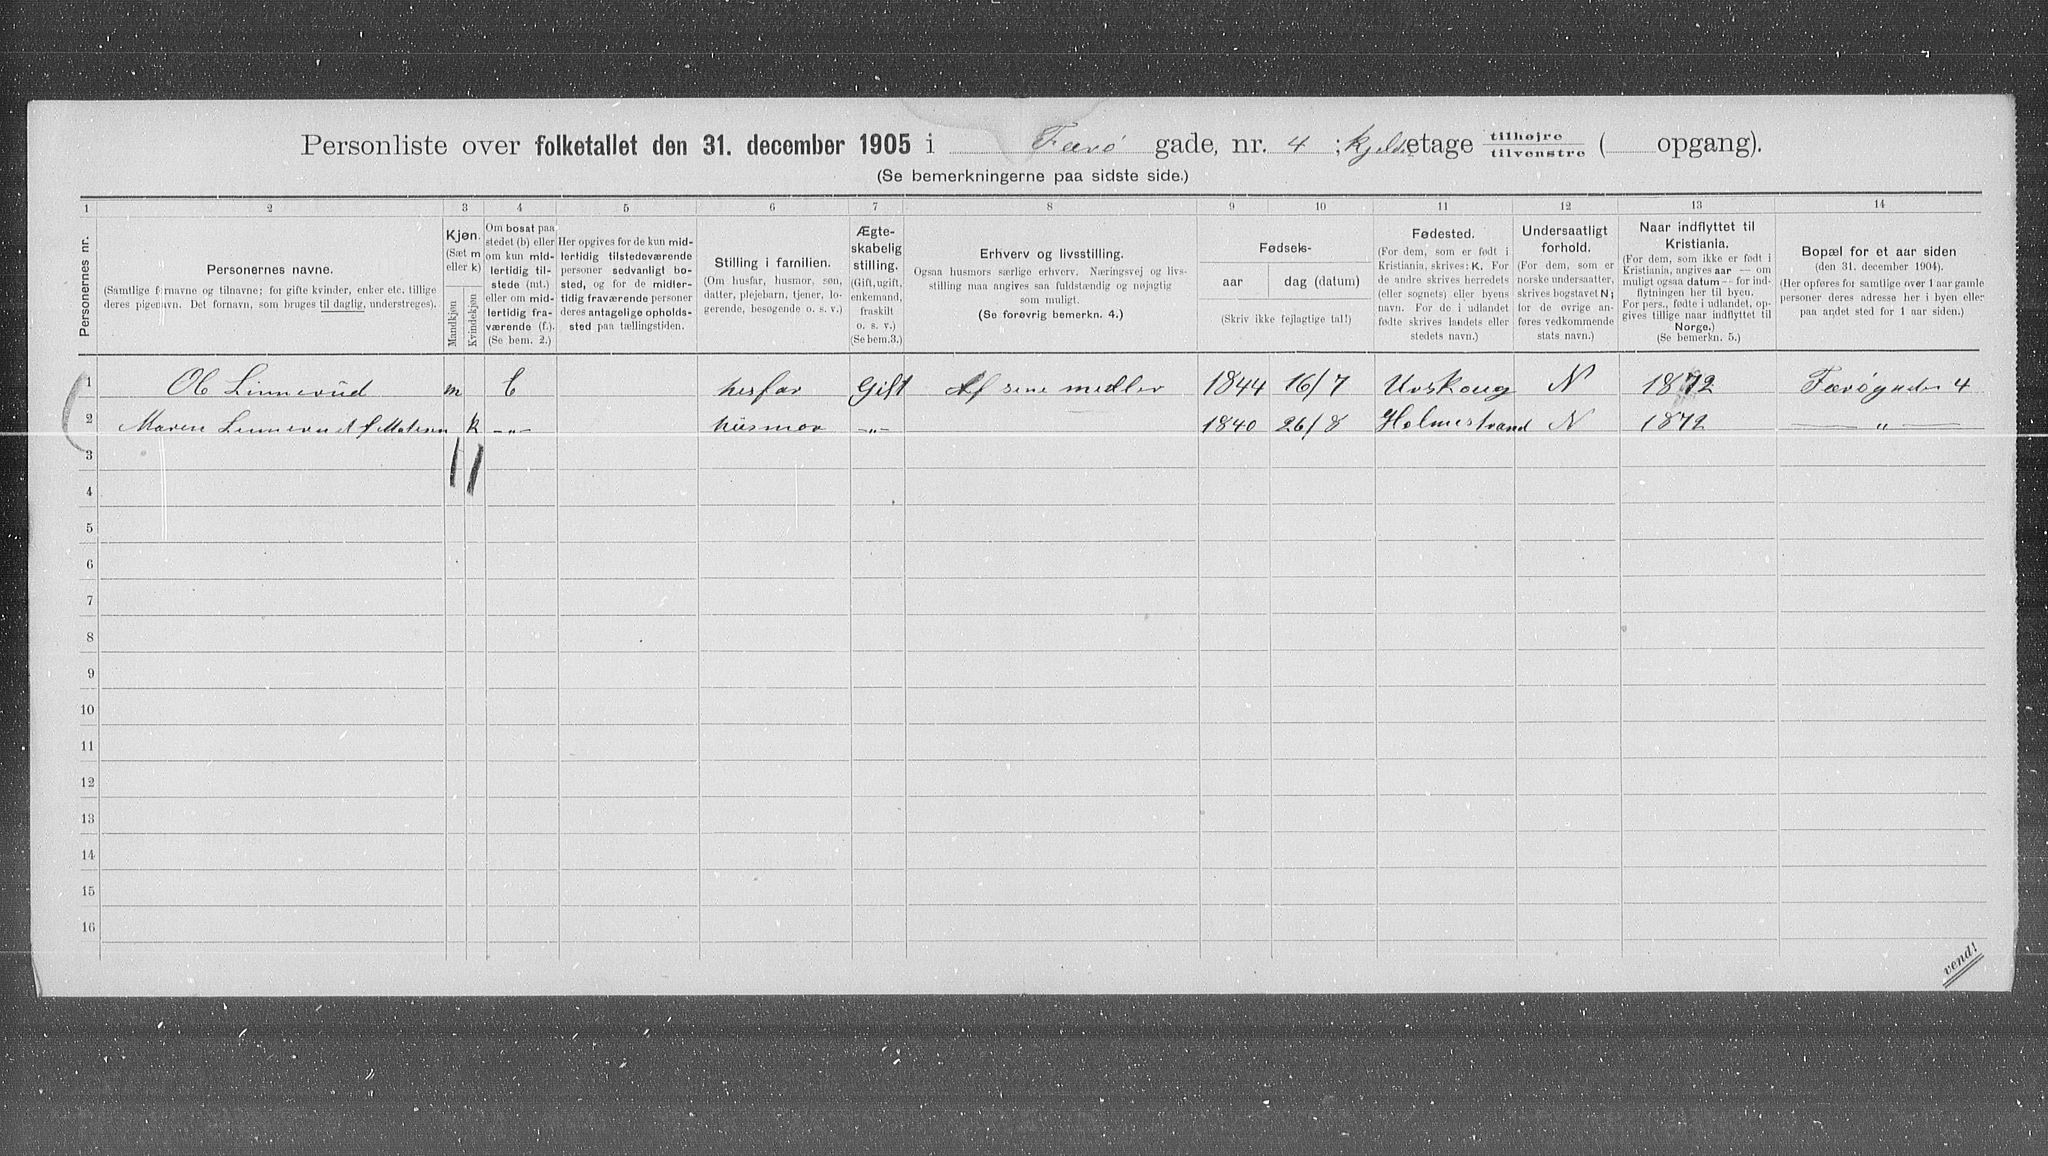 Personliste over folketallet den 31. december 1905 i Færø gade, nr. 4 ; kjeld etage tilhøjre tilvenstre ( opgang).
(Se bemerkningerne paa sidste side.)
1 2 3 4 5 6 7 8 9 10 11 12 13 14
Personernes nr.
Personernes navne.
(Samtlige fornavne og tilnavne; for gifte kvinder, enker etc. tillige
deres pigenavn. Det fornavn, som bruges til daglig, understreges).
Kjøn.
(Sæt m
eller k)
Mandkjøn
Kvindekjøn
Om bosat paa
stedet (b) eller
om kun mid-
lertidig til-
stede (mt.)
eller om mid-
lertidig fra-
værende (f.).
(Se bem. 2.)
Her opgives for de kun mid-
lertidig tilstedeværende
personer sedvanligt bo-
sted, og for de midler-
tidig fraværende personer
deres antagelige opholds-
sted paa tællingstiden.
Stilling i familien.
(Om husfar, husmor, søn,
datter, plejebarn, tjener, lo-
gerende, besøgende o. s. v.)
Ægte-
skabelig
stilling.
(Gift, ugift,
enkemand,
fraskilt
o. s. v.)
(Se bem.3.)
Erhverv og livsstilling.
Ogsaa husmors særlige erhverv. Næringsvej og livs-
stilling maa angives saa fuldstændig og nøjagtig
som muligt.
(Se forøvrig bemerkn. 4.)
Fødsels-
aar dag (datum)
(Skriv ikke fejlagtige tal!)
Fødested.
(For dem, som er født i
Kristiania, skrives: K. For
de andre skrives herredets
(eller sognets) eller byens
navn. For de i udlandet
fødte skrives landets eller
stedets navn.)
Undersaatligt
forhold.
(For dem, som er
norske undersaatter,
skrives bogstavet N;
for de øvrige an-
føres vedkommende
stats navn.)
Naar indflyttet til
Kristiania.
(For dem, som ikke er født i
Kristiania, angives aar — om
muligt ogsaa datum — for ind-
flytningen her til byen.
For pers., fødte i udlandet, op-
gives tillige naar indflyttet til
Norge.)
(Se bemerkn. 5.)
Bopæl for et aar siden
(den 31. december 1904).
(Her opføres for samtlige over 1 aar gamle
personer deres adresse her i byen eller
paa andet sted for 1 aar siden.)
1 Ole Linnerud m b husfar Gift Af sine medler 1844 16/7 Urskoug N 1872 Færøgaden 4
2 Maren Linnerud f Matisen k —„— husmor —„— 1840 26/8 Holmestrand N 1872 — „ —
3
4
5
6
7
8
9
10
11
12
13
14
15
16
vend!